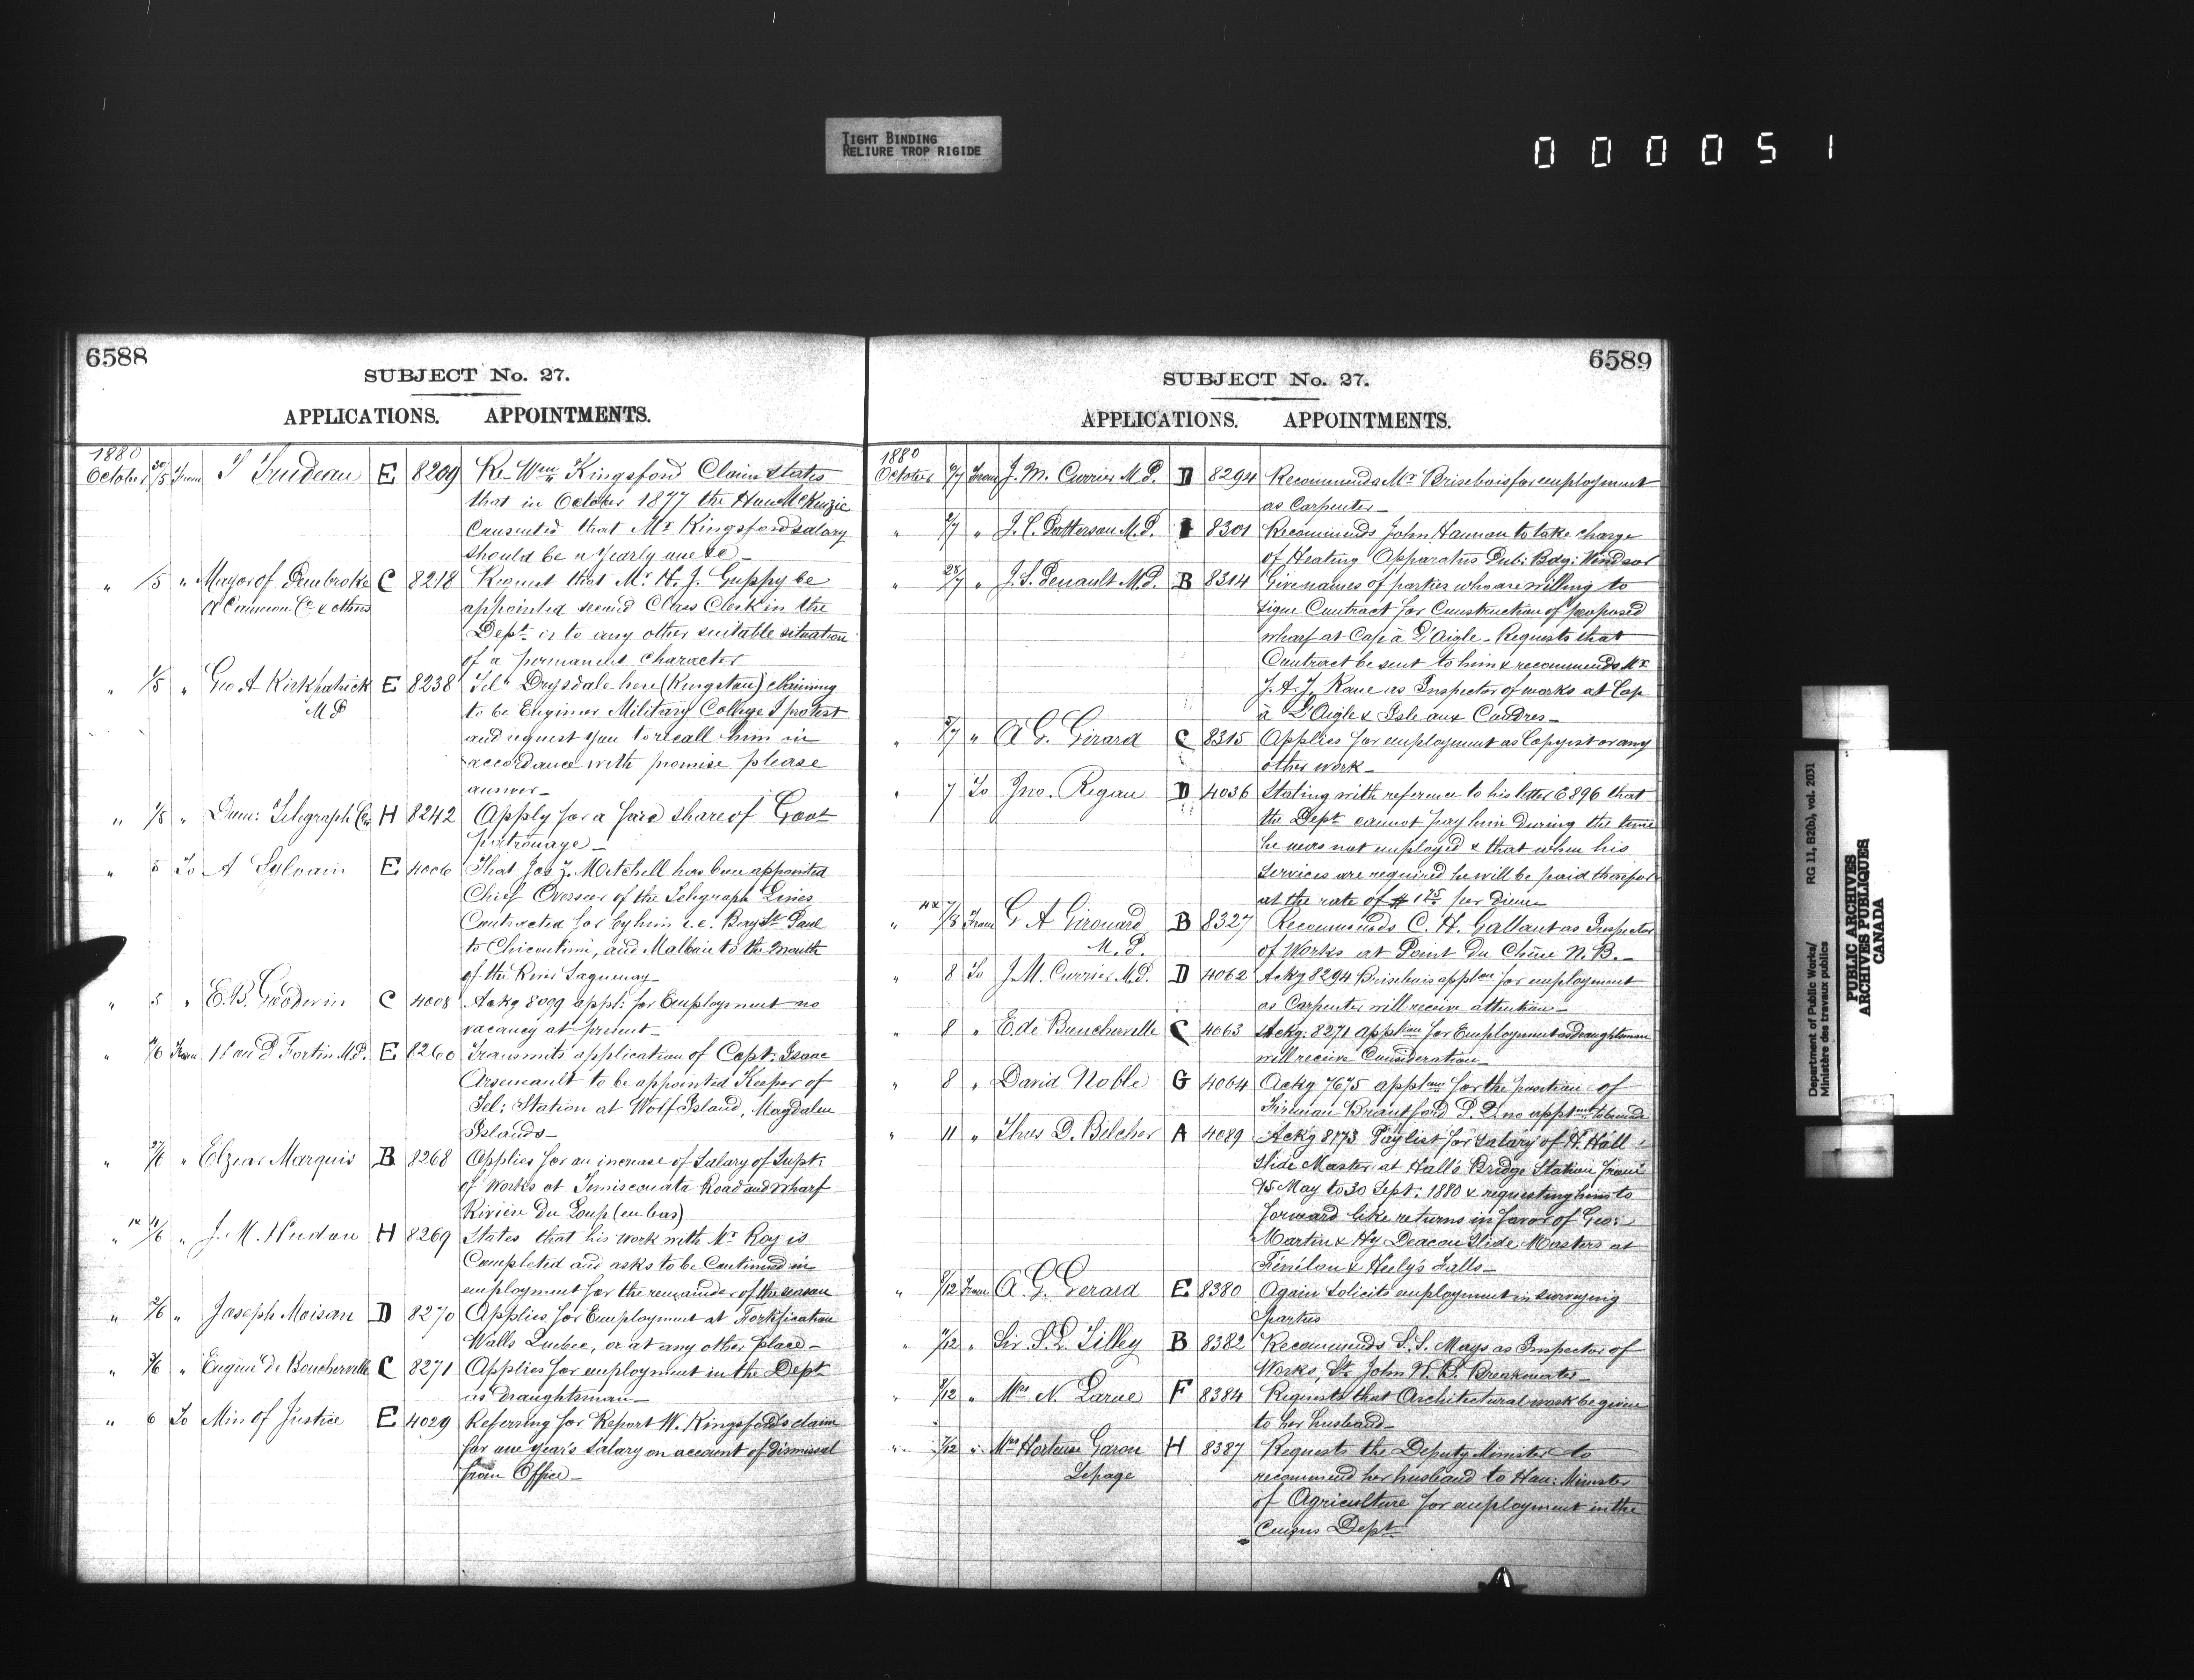 TIGHT BINDING
RELIURE TROP RIGIDE
000051
6588
SUBJECT No. 27.
APPLICATIONS. APPOINTMENTS.
1880
October 30/5 From T Trudeau E 8209 Re Wm Kingsford Claim States
that in October 1877 the Hon McKenzie
Consented that Mr Kingsford salary
should be a yearly one &c
" 1/5 " Mayor of Pembroke C 8218 Request that Mr H. J. Guppy be
& Common Co & others appointed second Class Clerk in the
Dept. or to any other suitable situation
of a permanent character
" 1/5 " Geo A Kirkpatrick E 8238 Telh Drysdale here (Kingston) claiming
M P to be Engineer Military College I protest
and request you to recall him in
accordance with promise please
answer
" 1/5 " Dom: Telegraph Co H 8242 Apply for a fare share of Govt
patronage
" 5 To A Sylvain E 4006 That Jos Z. Mitchell has been appointed
Chief Overseer of the Telegraph Lines
Contracted for by him i.e. Bay St. Paul
to Chicoutimi, and Malbaie to the mouth
of the River Saguenay
" 5 " E. B. Goodwin C 4008 Ackg 8009 appl: for Employment no
vacancy at present
" 1/6 From Hon P Fortin M.P. E 8260 Transmits application of Capt. Isaac
Arseneault to be appointed Keeper of
Tel: Station at Wolf Island, Magdalen
Islands
" 27/6 " Elzear Marquis B 8268 Applies for an increase of Salary of Supt.
of Works at Temiscouata Road and Wharf
Rivière Du Loup (en bas)
" /6 " J. M. Hudon H 8269 States that his work with Mr Roy is
Completed and asks to be Continued in
employment for the remainder of the season
" 2/6 " Joseph Moisan D 8270 Applies for Employment at Fortification
Walls Quebec, or at any other place
" /6 " Eugène de Boucherville C 8271 Applies for employment in the Dept
as Draughtsman
" 6 To Min of Justice E 4029 Referring for Report W. Kingsford's claim
for one year's salary on account of dismissal
from Office
6589
SUBJECT No. 27.
APPLICATIONS. APPOINTMENTS.
1880
October /7 From J. M. Currier M.P. D 8294 Recommends Mr Brisebois for employment
as Carpenter
" 2/7 " J. C. Patterson M.P. 8301 Recommends John Hannan to take charge
of Heating Apparatus Pub: Bdg: Windsor
" 28/7 " J. S. Perrault M.P. B 8314 Gives names of parties who are willing to
sign Contract for Construction of proposed
wharf at Cap à L'Aigle. Requests that
Contract be sent to him & recommends Mr
J. A. J. Kane as Inspector of works at Cap
à L'Aigle & Isle aux Coudres
" /7 " A G. Girard C 8315 Applies for employment as Copyist or any
other work
" 7 To Jno. Regan D 4036 Stating with reference to his letter 6896 that
the Dept cannot pay him during the time
he was not employed & that when his
services are required he will be paid therefor
at the rate of $ 1 75 per diem
" /8 From G A Girouard B 8327 Recommends C. H. Gallant as Inspector
M. P. of Works at Point Du Chêne N. B.
" 8 To J. M. Currier M.P. D 4062 Ackg 8294 Brisebois applon for employment
as Carpenter will receive attention
" 8 " E de Boucherville C 4063 Ackg: 8271 application for Employment as draughtsman
will receive Consideration
" 8 " David Noble G 4064 Ackg 7675 applon for the position of
Fireman Brantford P. O no apptmt to be made
" 11 " Thos D. Belcher A 4089 Ackg 8173 Paylist for salary of H. Hall
Slide Master at Hall's Bridge Station from
15 May to 30 Sept. 1880 & requesting him to
forward like returns in favor of Geo:
Martin & Hy Deacon Slide Masters at
Fénélon & Heely's Falls
" 9/12 From A. G. Gerard E 8380 Again solicits employment in surveying
parties
" /12 " Sir S. L. Tilley B 8382 Recommends S. S. Mays as Inspector of
Works, St. John N. B. Breakwater
" /12 " Mrs N. Larue F 8384 Requests that Architectural work be given
to her husband
" /12 " Mrs Hortense Garon H 8387 Requests the Deputy Minister to
Lepage recommend her husband to Hon: Minister
of Agriculture for employment in the
Census Dept.
Department of Public Works/ RG 11, B2(b), vol. 2031
Ministère des travaux publics
PUBLIC ARCHIVES
ARCHIVES PUBLIQUES
CANADA